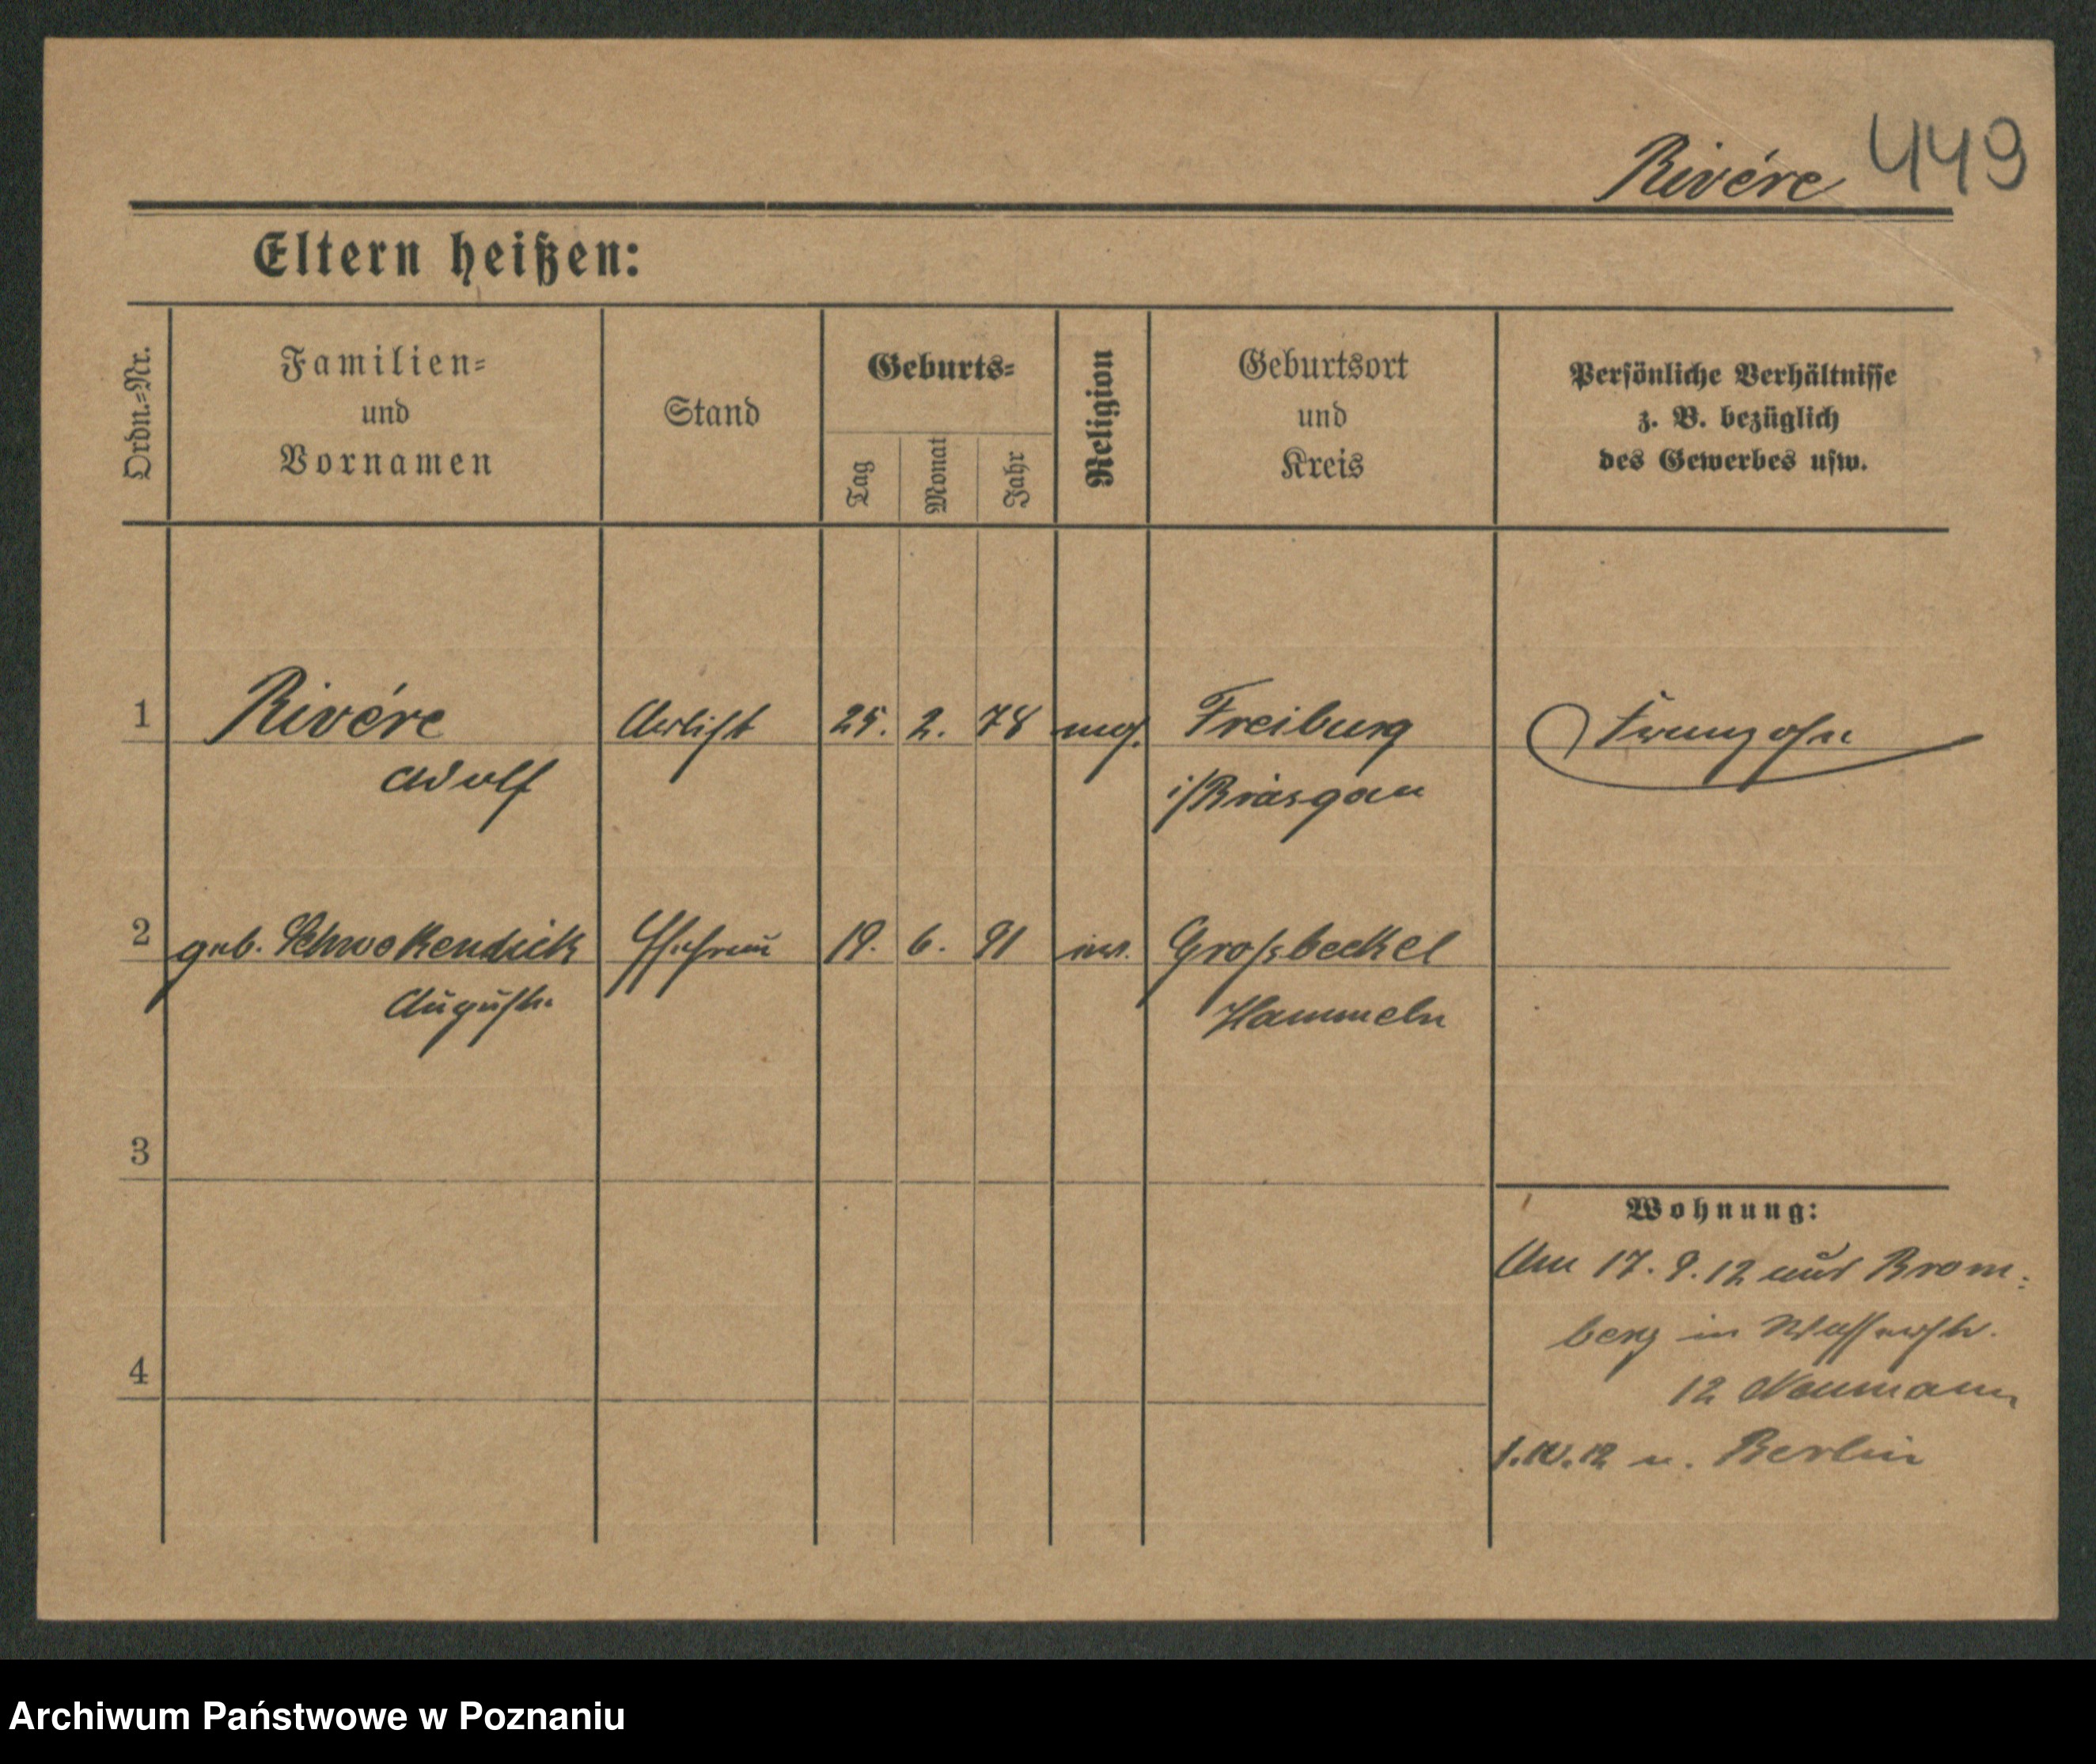 Rivére 449
Eltern heißen:
Ordn.=Nr.
Familien=
und
Vornamen
Stand
Geburts=
Tag
Monat
Jahr
Religion
Geburtsort
und
Kreis
Persönliche Verhältnisse
z. B. bezüglich
des Gewerbes usw.
1 Rivére Artist 25. 2. 78 Freiburg Franzose
Adolf i/Brasgau
2 geb. Schwekendick Ehefrau 19. 6. 91 Grossbeckel
Auguste Hammeln
3
4
Wohnung:
Am 17. 9. 12 aus Brom=
berg in Wasserstr.
12 Neumann
1.10.12 n. Berlin
Archiwum Państwowe w Poznaniu